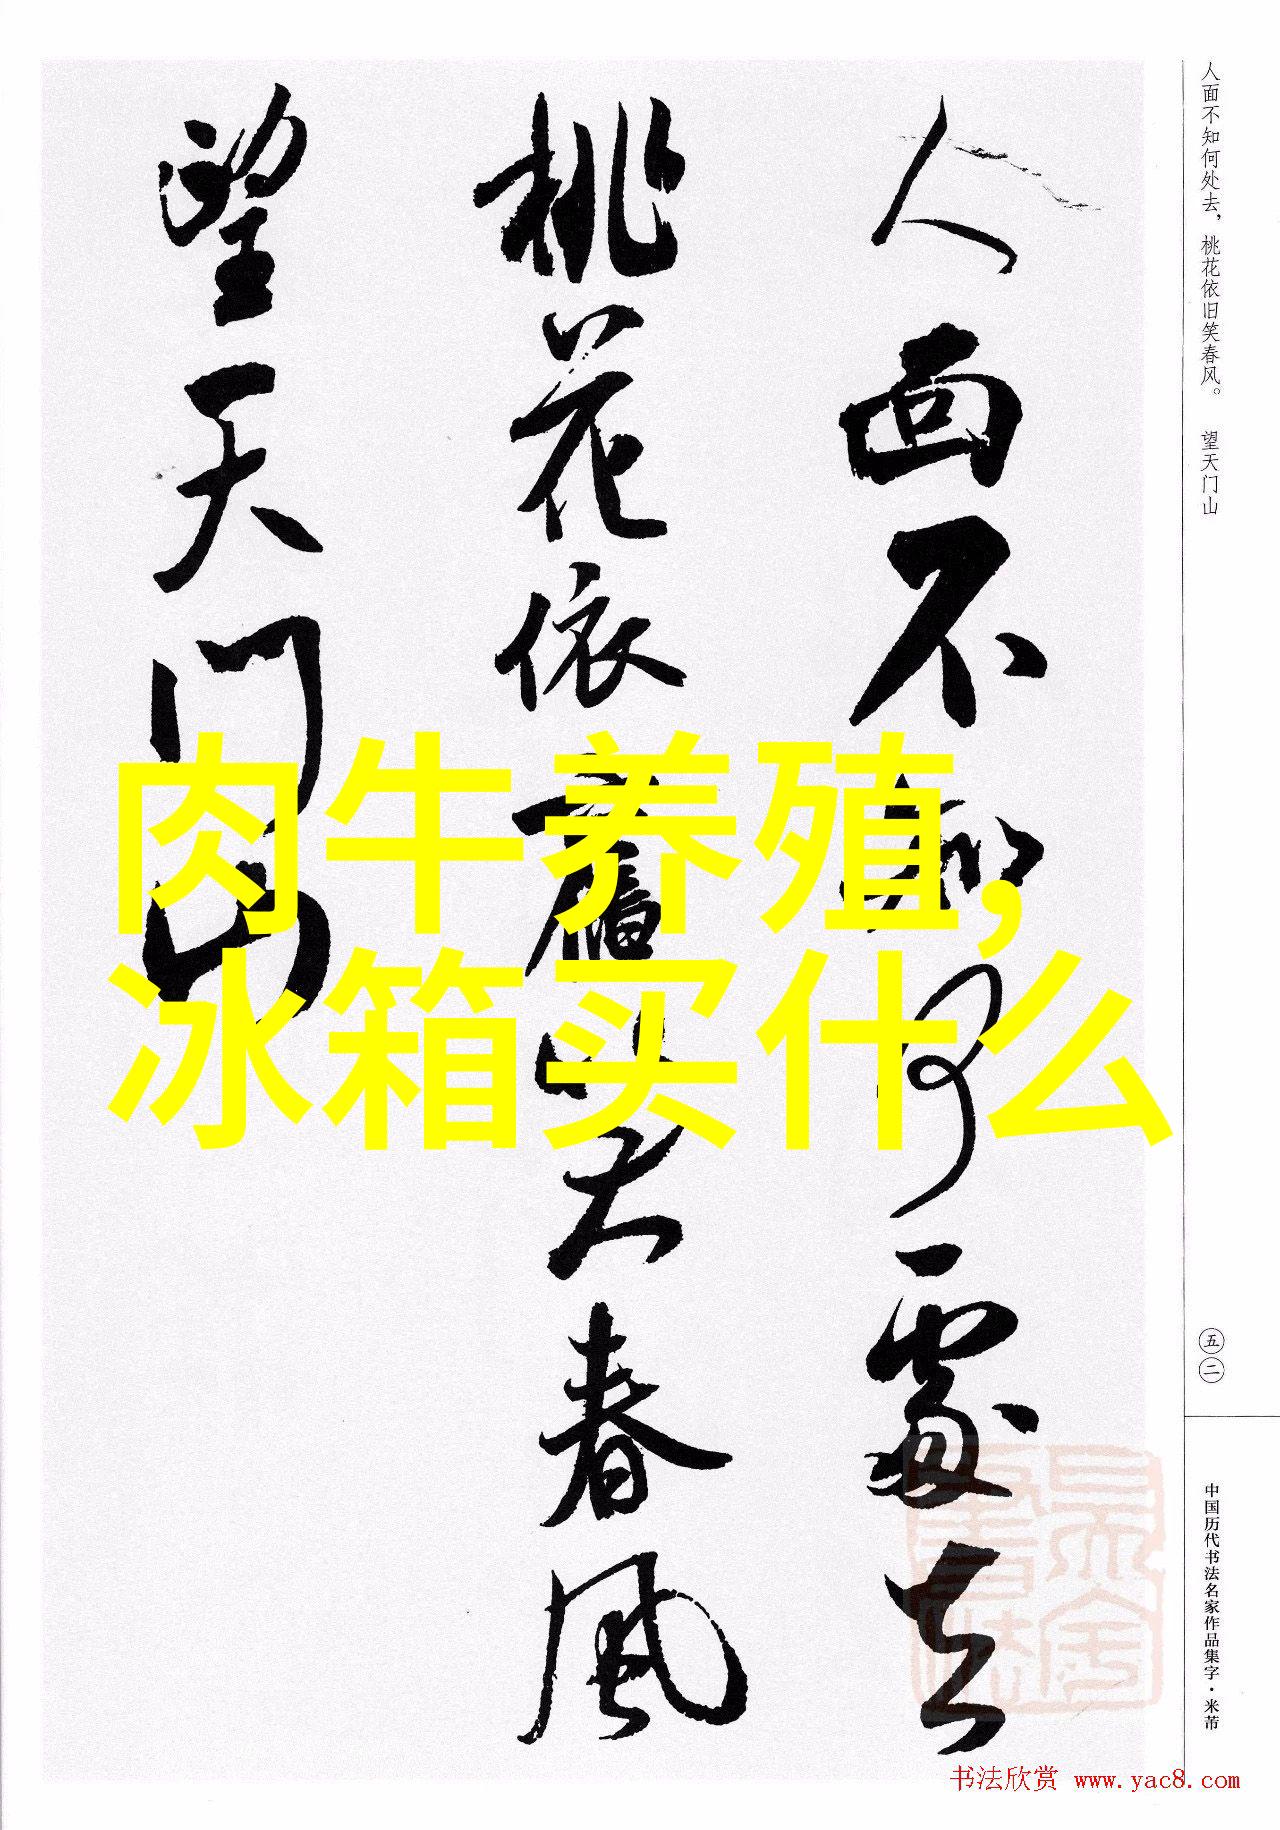 人面不知何處去
桃花依舊笑春風
望天门山
肉牛养殖,
冰箱买什么
人面不知何处去，桃花依旧笑春风。 望天门山
五二
中国历代书法名家作品集字·米芾
书法欣赏 www.yac8.com